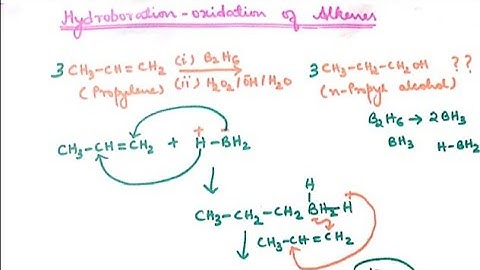 Hydroboration-oxidation of Alkenes
3 CH3-CH=CH2 (i) B2H6 3 CH3-CH2-CH2OH ??
(Propylene) (ii) H2O2/ŌH/H2O (n-Propyl alcohol)
B2H6 → 2BH3
BH3 H-BH2
CH3-CH=CH2 + H-BH2
+
H
CH3-CH2-CH2 BH2-H
CH3-CH=CH2